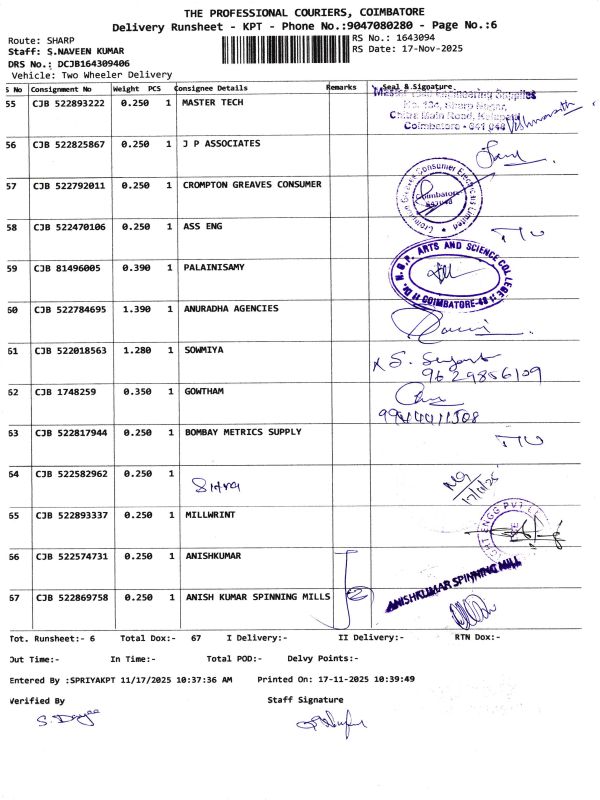 THE PROFESSIONAL COURIERS, COIMBATORE
Delivery Runsheet - KPT - Phone No.:9047080280 - Page No.:6
Route: SHARP
RS No.: 1643094
Staff: S.NAVEEN KUMAR
RS Date: 17-Nov-2025
DRS No.: DCJB164309406
Vehicle: Two Wheeler Delivery
S No Consignment No Weight PCS Consignee Details Remarks Seal & Signature
55 CJB 522893222 0.250 1 MASTER TECH
Engineering Supplies
Main Road,
Coimbatore - 641 048
56 CJB 522825867 0.250 1 J P ASSOCIATES
57 CJB 522792011 0.250 1 CROMPTON GREAVES CONSUMER
Crompton Greaves Consumer Electricals Limited
Coimbatore
58 CJB 522470106 0.250 1 ASS ENG
59 CJB 81496005 0.390 1 PALAINISAMY
Dr. N.G.P. ARTS AND SCIENCE COLLEGE
COIMBATORE-48
60 CJB 522784695 1.390 1 ANURADHA AGENCIES
61 CJB 522018563 1.280 1 SOWMIYA
9629856109
62 CJB 1748259 0.350 1 GOWTHAM
63 CJB 522817944 0.250 1 BOMBAY METRICS SUPPLY
64 CJB 522582962 0.250 1
17/11/25
65 CJB 522893337 0.250 1 MILLWRINT
ENGG PVT
66 CJB 522574731 0.250 1 ANISHKUMAR
ANISHKUMAR SPINNING MILL
67 CJB 522869758 0.250 1 ANISH KUMAR SPINNING MILLS
2
Tot. Runsheet:- 6 Total Dox:- 67 I Delivery:- II Delivery:- RTN Dox:-
Out Time:- In Time:- Total POD:- Delvy Points:-
Entered By :SPRIYAKPT 11/17/2025 10:37:36 AM Printed On: 17-11-2025 10:39:49
Verified By Staff Signature